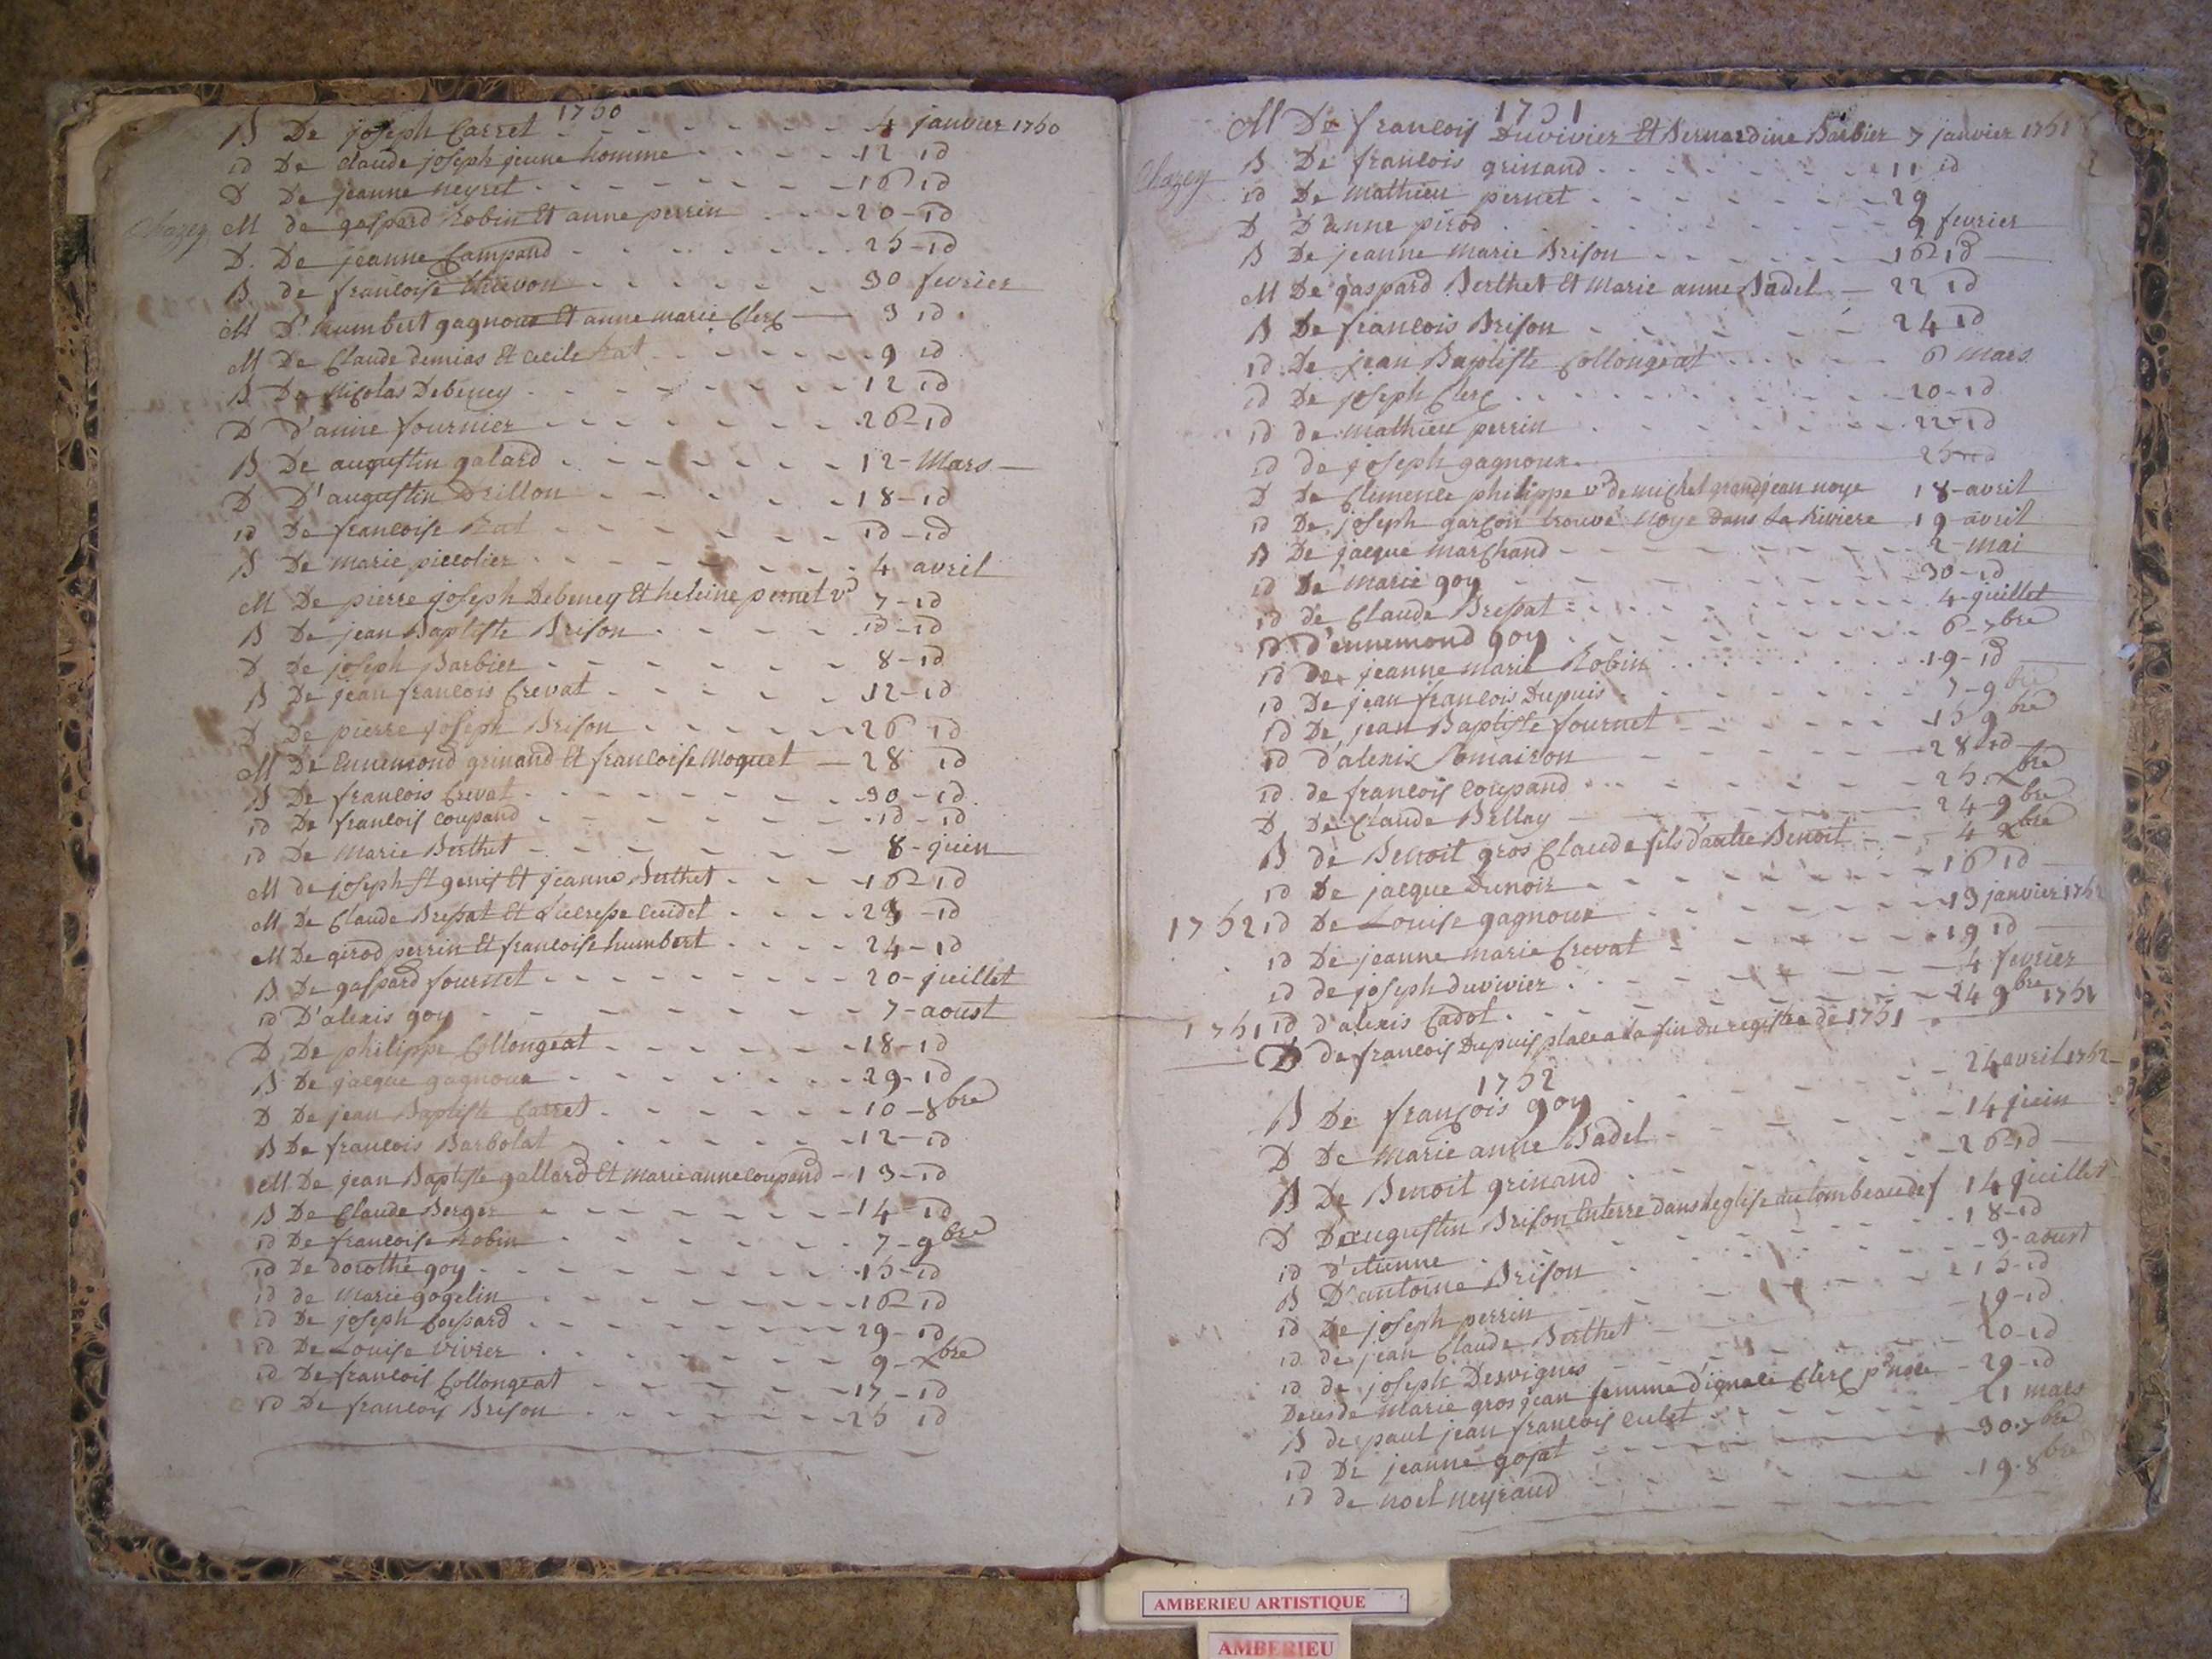 1750
B De joseph Carret - - - 4 janvier 1750
id De Claude joseph jeune homme - - - 12 id
D De jeanne neyret - - - 16 id
Chazey M de gaspard Robin Et anne perrin - - - 20 - id
D. De jeanne Campand - - - 25 - id
B de francoise thievon - - - 30 fevrier
M D'humbert gagnoux Et anne marie Clerc - 3 id.
M De Claude demias Et Cecile Rat - - - 9 id
B De Nicolas Debeney - - - 12 id
D D'anne fournier - - - 26 - id
B De augustin galard - - - 12 - Mars
D D'augustin Drillon - - - 18 - id
id De francoise Rat - - - id - id
B De Marie piccolier - - - 4 avril
M De pierre joseph Debeney Et heleine pernet v^e 7 - id
B De jean Baptiste Brison - - - id - id
D De joseph Barbier - - - 8 - id
B De jean francois Crevat - - - 12 - id
D De pierre joseph Brison - - - 26 id
M De Ennemond grinand Et francoise Moquet - 28 id
B De francois Crevat - - - 30 - id
id De francois Coupand - - - id - id
id De Marie Berthet - - - 8 - juin
M de joseph St genis Et jeanne Berthet - - - 16 - id
M De Claude Bressat Et Lucresse Cudet - - - 23 - id
M De girod perrin Et francoise humbert - - - 24 - id
B De gaspard fournet - - - 20 - juillet
id D'alexis goy - - - 7 - aoust
D De philippe Collongeat - - - 18 - id
B De jacque gagnoux - - - 29 - id
D De jean Baptiste Carret - - - 10 - 8bre
B De francois Barbolat - - - 12 - id
M De jean Baptiste gallard Et Marie anne Coupand - 13 - id
B De Claude Berger - - - 14 - id
id De francoise Robin - - - 7 - 9bre
id De dorothé goy - - - 15 - id
id de Marie gogelin - - - 16 - id
id De joseph Coupard - - - 29 - id
id De Louise vivier - - - 9 - xbre
id De francois Collongeat - - - 17 - id
id De francois Brison - - - 25 id
1751
M De francois Duvivier Et Bernardine Barbier 7 janvier 1751
B De francois grinand - - - 11 id
Chazey id De Mathieu pernet - - - 29
D D'anne pirod - - - 9 fevrier
B De jeanne Marie Brison - - - 16 id
M De gaspard Berthet Et Marie anne Badel - 22 id
B De francois Brison - - - 24 id
id De jean Baptiste Collongeat - - - 6 Mars
id De joseph Clerc - - - 20 - id
id de Mathieu perrin - - - 22 - id
id de joseph gagnoux - - - 25 - id
D De Clemence philippe v^e de michel grandjean noye 18 - avril
id De joseph garçon trouvé noye dans la Riviere 19 avril
B De jacque Marchand - - - 2 - mai
id De Marie goy - - - 30 - id
id de Claude Bressat - - - 4 - juillet
id D'ennemond goy - - - 6 - 7bre
id de jeanne marie Robin - - - 19 - id
id De jean francois Dupuis - - - 7 - 9bre
id De jean Baptiste fournet - - - 15 9bre
id d'alexis Somaizon - - - 28 - id
id de francois Coupand - - - 25 xbre
D De Claude Bellay - - - 24 - 9bre
B de Benoit gros Claude fils d'autre Benoit - - 4 xbre
id De jacque Dunoir - - - 16 id
1752 id De Louise gagnoux - - - 13 janvier 1752
id De jeanne marie Crevat - - - 19 id
id de joseph duvivier - - - 4 fevrier
1751 id d'alexis Cadot - - - 24 9bre 1751
D de francois Dupuis place a la fin du registre de 1751
1752
B De françois goy - - - 24 avril 1752
D De Marie anne Badel - - - 14 juin
B De Benoit grinand - - - 26 id
D D'augustin Brison Enterre dans leglise au tombeau des 14 juillet
id d'etienne - - - 18 - id
B D'antoine Brison - - - 3 - aoust
id De joseph perrin - - - 15 - id
id de jean Claude Berthet - - - 19 - id
id de joseph Desvignes - - - 20 - id
Deces de Marie gros jean femme d'ignace Clerc - 29 - id
B de paul jean francois Culet - - - 21 mars
id De jeanne gojat - - - 30. 7bre
id de noel neyraud - - - 19. 8bre
AMBERIEU ARTISTIQUE
AMBERIEU